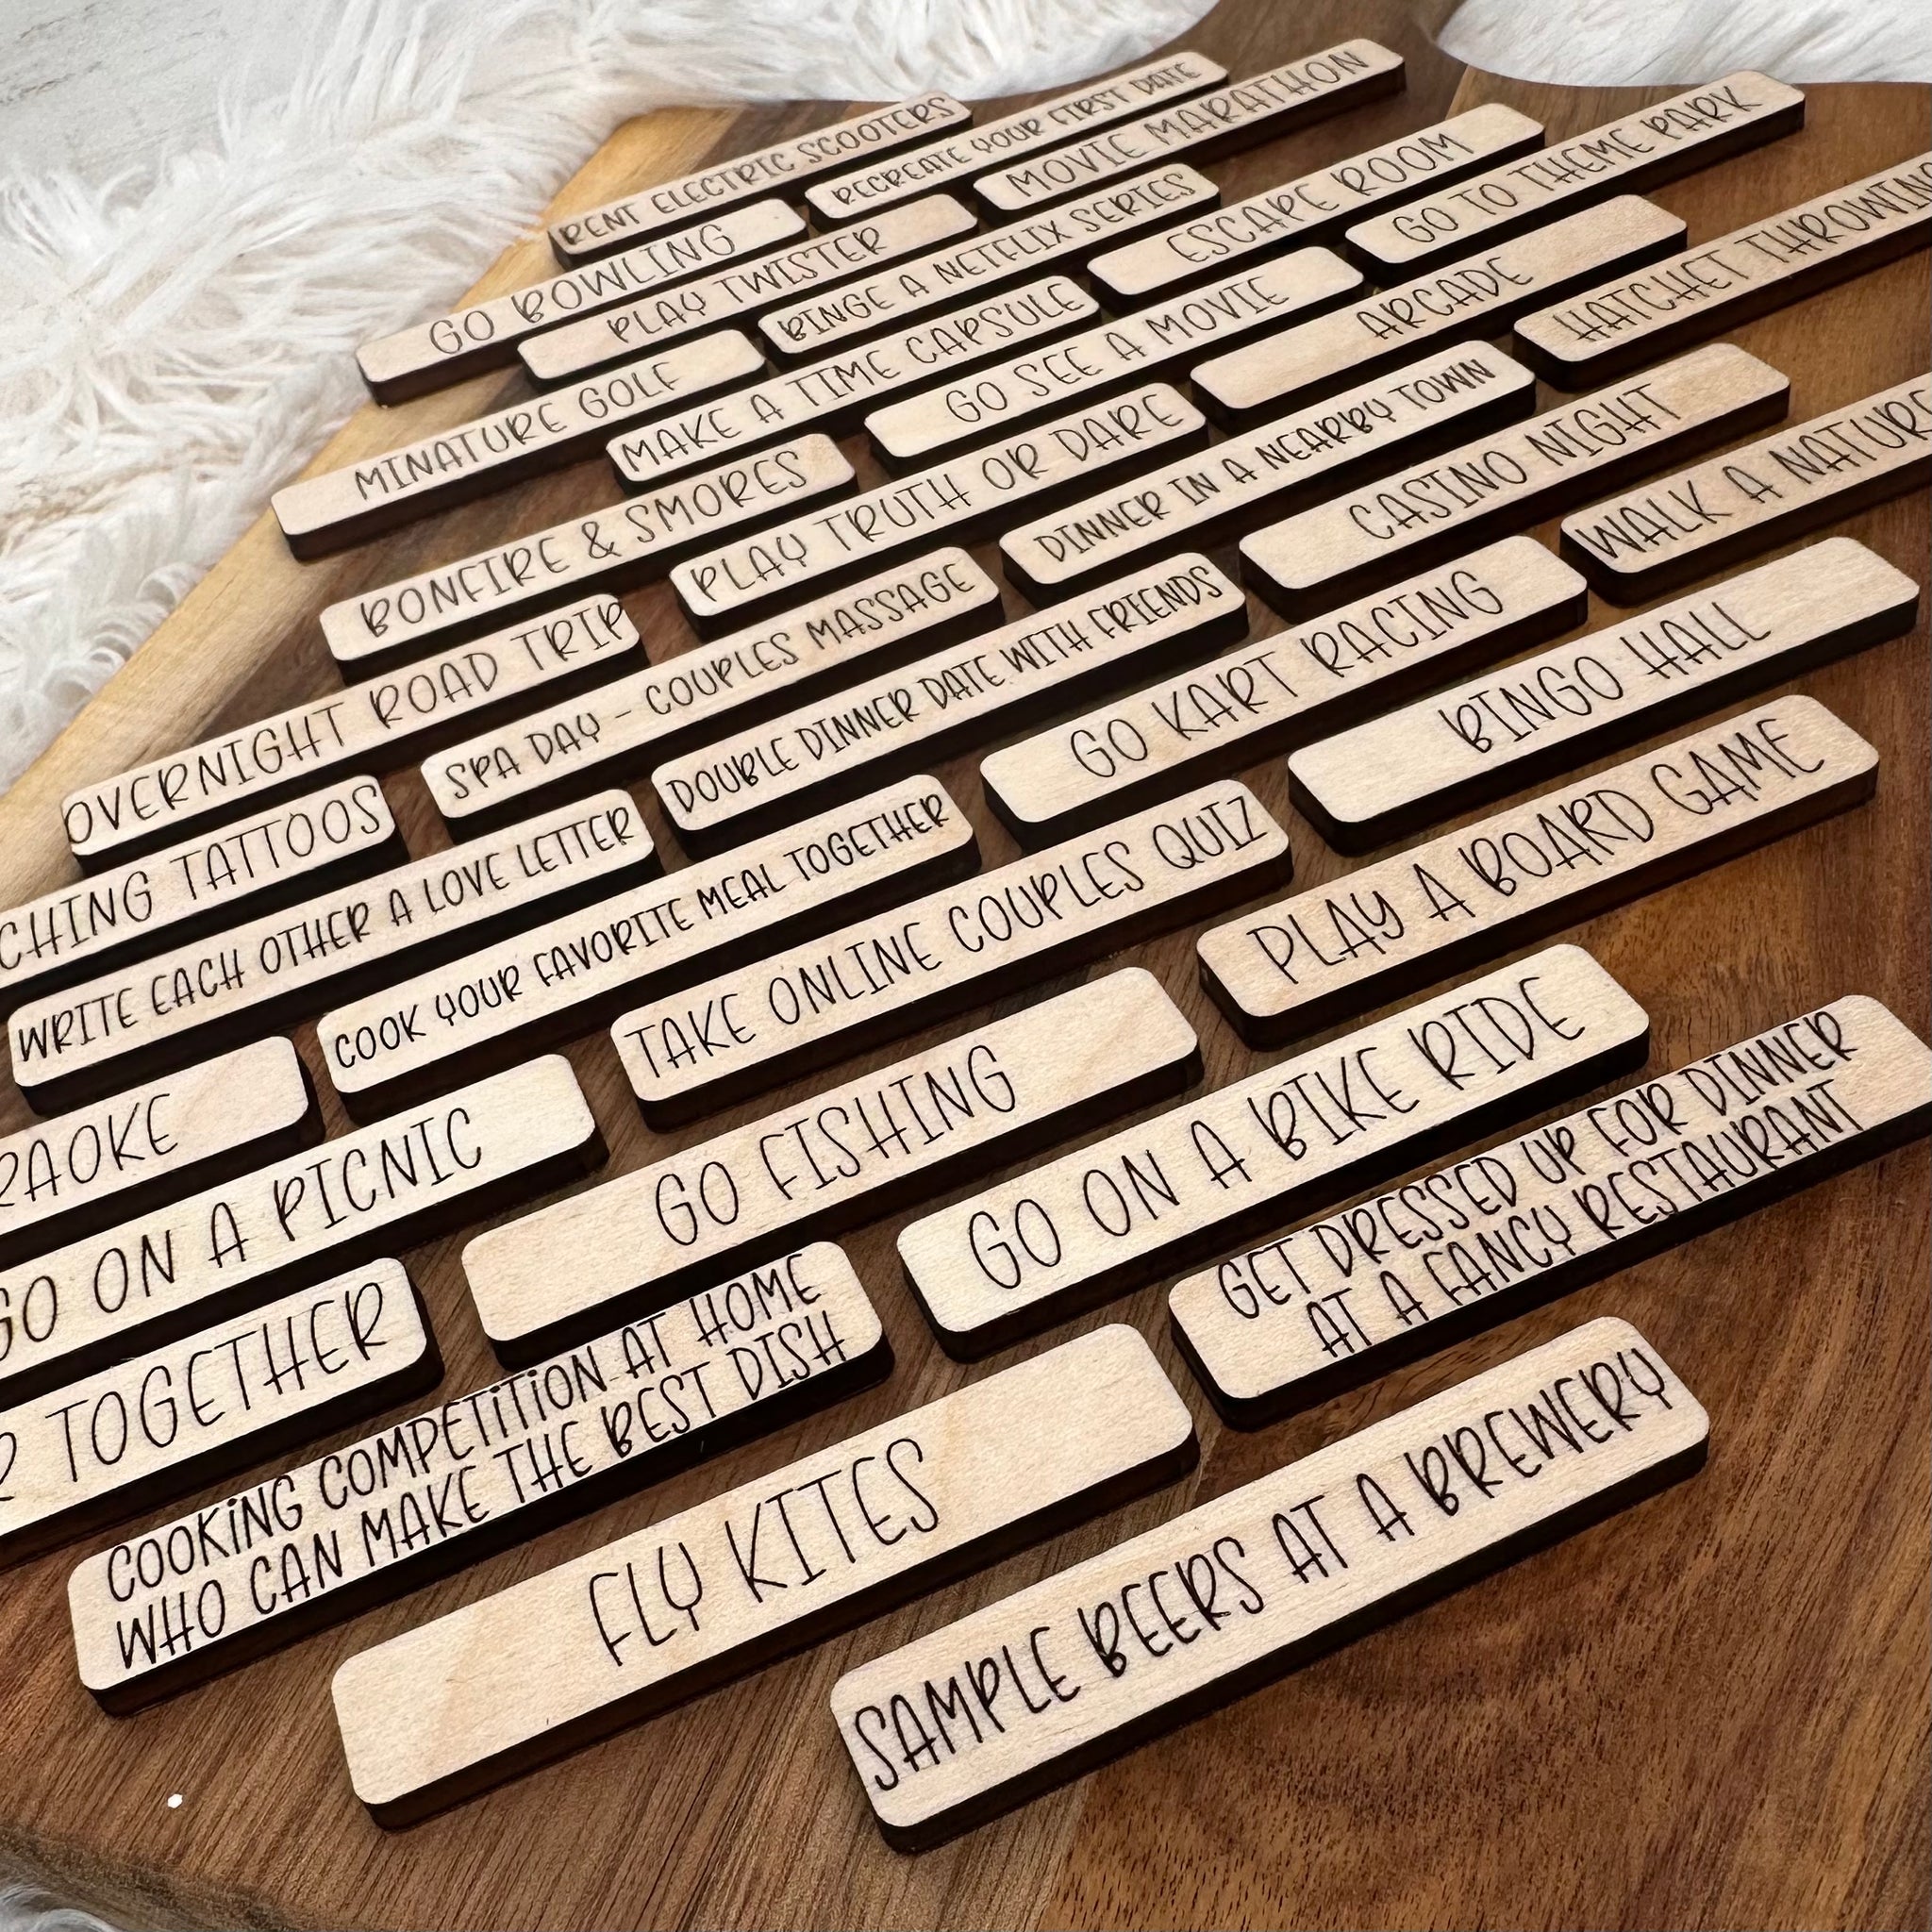 RENT ELECTRIC SCOOTERS
RECREATE YOUR FIRST DATE
MOVIE MARATHON
GO BOWLING
PLAY TWISTER
BINGE A NETFLIX SERIES
ESCAPE ROOM
GO TO THEME PARK
MINATURE GOLF
MAKE A TIME CAPSULE
GO SEE A MOVIE
ARCADE
HATCHET THROWING
BONFIRE & SMORES
PLAY TRUTH OR DARE
DINNER IN A NEARBY TOWN
CASINO NIGHT
WALK A NATURE
OVERNIGHT ROAD TRIP
SPA DAY - COUPLES MASSAGE
DOUBLE DINNER DATE WITH FRIENDS
GO KART RACING
BINGO HALL
CHING TATTOOS
WRITE EACH OTHER A LOVE LETTER
COOK YOUR FAVORITE MEAL TOGETHER
TAKE ONLINE COUPLES QUIZ
PLAY A BOARD GAME
RAOKE
GO ON A PICNIC
GO FISHING
GO ON A BIKE RIDE
GET DRESSED UP FOR DINNER
AT A FANCY RESTAURANT
R TOGETHER
COOKING COMPETITION AT HOME
WHO CAN MAKE THE BEST DISH
FLY KITES
SAMPLE BEERS AT A BREWERY